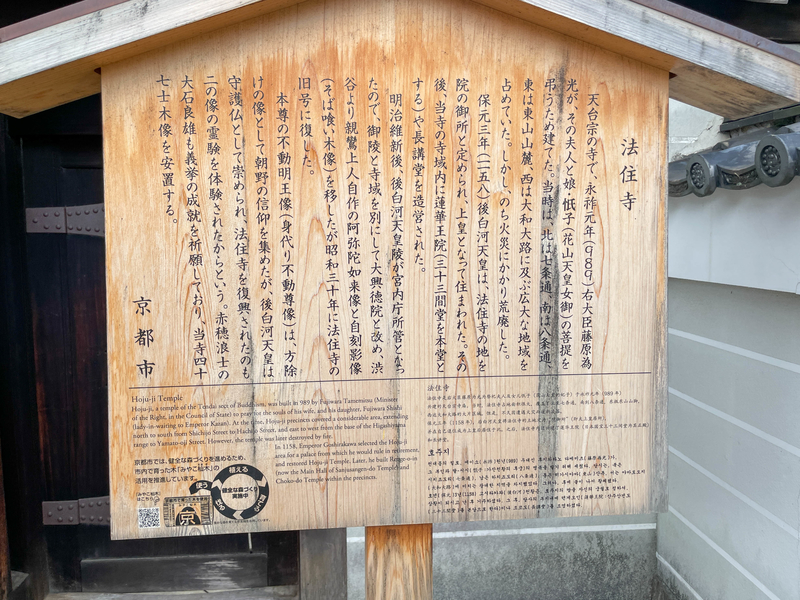 法住寺
天台宗の寺で、永祚元年(989)右大臣藤原為
光が、その夫人と娘・忯子(花山天皇女御)の菩提を
弔うため建てた。当時は、北は七条通、南は八条通、
東は東山山麓、西は大和大路に及ぶ広大な地域を
占めていた。しかし、のち火災にかかり荒廃した。
保元三年(一一五八)後白河天皇は、法住寺の地を
院の御所と定められ、上皇となって住まわれた。その
後、当寺の寺域内に蓮華王院(三十三間堂を本堂と
する)や長講堂を造営された。
明治維新後、後白河天皇陵が宮内庁所管となっ
たので、御陵と寺域を別にして大興徳院と改め、渋
谷より親鸞上人自作の阿弥陀如来像と自刻影像
(そば喰い木像)を移したが昭和三十年に法住寺の
旧号に復した。
本尊の不動明王像(身代り不動尊像)は、方除
けの像として朝野の信仰を集めたが、後白河天皇は
守護仏として崇められ、法住寺を復興されたのも
この像の霊験を体験されたからという。赤穂浪士の
大石良雄も義挙の成就を祈願しており、当寺四十
七士木像を安置する。
京都市
Hoju-ji Temple
Hoju-ji, a temple of the Tendai sect of Buddhism, was built in 989 by Fujiwara Tamemitsu (Minister
of the Right, in the Council of State) to pray for the souls of his wife, and his daughter, Fujiwara Shishi
(lady-in-waiting to Emperor Kazan). At the time, Hoju-ji precincts covered a considerable area, extending
north to south from Shichijo Street to Hachijo Street, and east to west from the base of the Higashiyama
range to Yamato-oji Street. However, the temple was later destroyed by fire.
In 1158, Emperor Goshirakawa selected the Hoju-ji
area for a palace from which he would rule in retirement,
and restored Hoju-ji Temple. Later, he built Rengeo-in
(now the Main Hall of Sanjusangen-do Temple) and
Choko-do Temple within the precincts.
京都市では、健全な森づくりを進めるため、
市内で育った木「みやこ杣木」の
活用を推進しています。
「みやこ杣木」
はこちら
植える
使う
健全な森づくり
実施中
京
法住寺
호주지